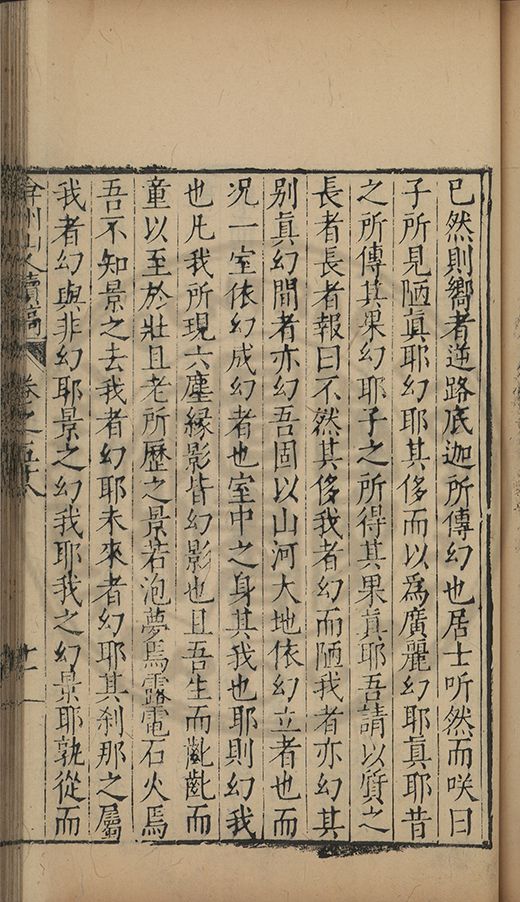 已然則嚮者逆路底迦所傳幻也居士听然而咲曰
子所見陋眞耶幻耶其侈而以爲廣麗幻耶眞耶昔
之所傳其果幻耶子之所得其果眞耶吾請以質之
長者長者報曰不然其侈我者幻而陋我者亦幻其
別眞幻間者亦幻吾固以山河大地依幻立者也而
况一室依幻成幻者也室中之身其我也耶則幻我
也凡我所現六塵緣影皆幻影也且吾生而齔齔而
童以至於壯且老所歷之景若泡夢焉露電石火焉
吾不知景之去我者幻耶未來者幻耶其刹那之屬
我者幻與非幻耶景之幻我耶我之幻景耶孰從而
弇州山人續稿 卷之五十八 十一